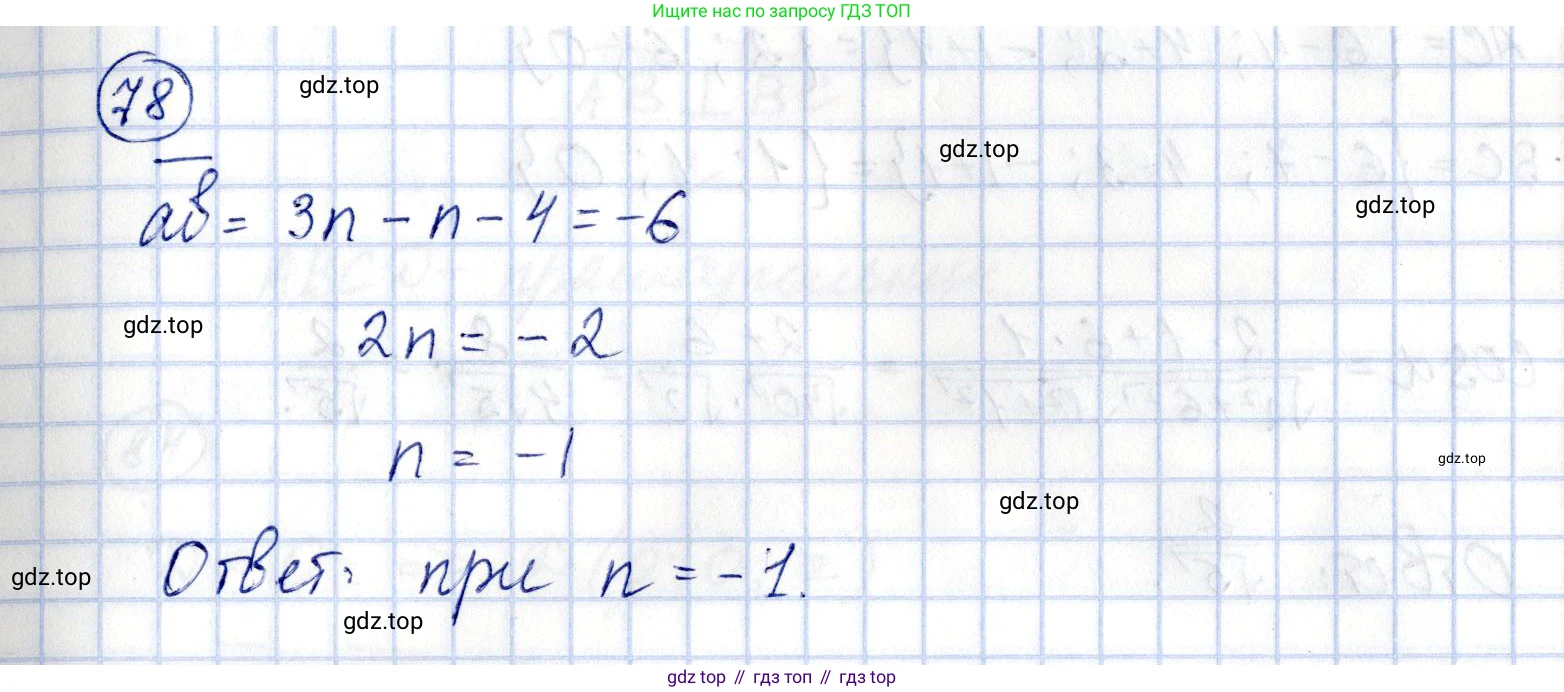 Ищите нас по запросу ГДЗ ТОП
78
gdz.top
gdz.top
gdz.top
aв = 3n - n - 4 = -6
gdz.top
2n = - 2
n = -1
gdz.top
gdz.top
Ответ: при n = -1.
gdz.top
gdz.top
gdz top // гдз топ // гдз top